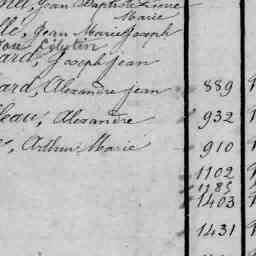 Jean Baptiste Pierre
Marie
lle, Jean Marie Joseph
Célestin
ard, Joseph Jean
ard, Alexandre Jean 889
eau, Alexandre 932
, Arthur Marie 910
1102
1185
1403
1431